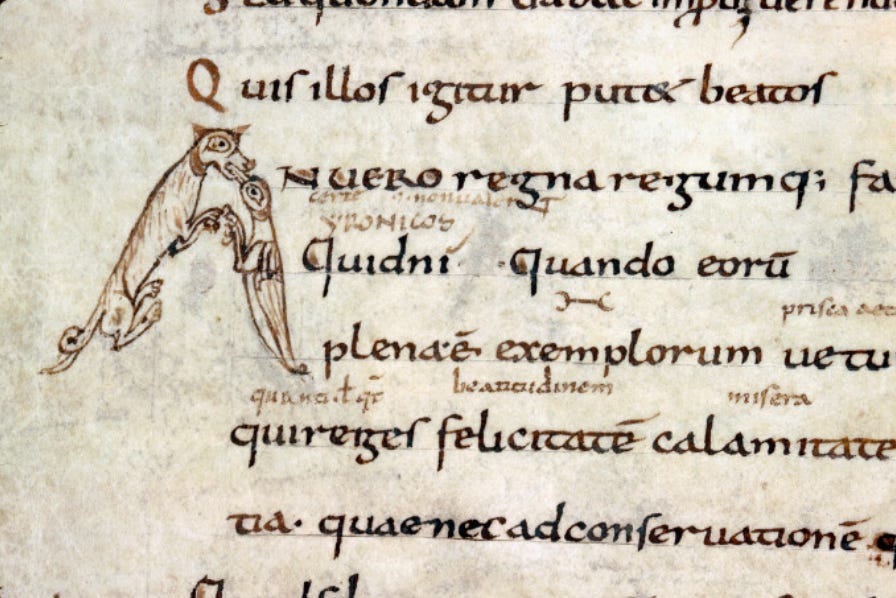 Quis illos igitur putet beatos
AN UERO regna regumq; fa
YRONICOS
Quidni Quando eorū
prisca
plena ē exemplorum uetu
beatitudinem misera
qui reges felicitatē calamitate
tia. quae nec ad conseruationē